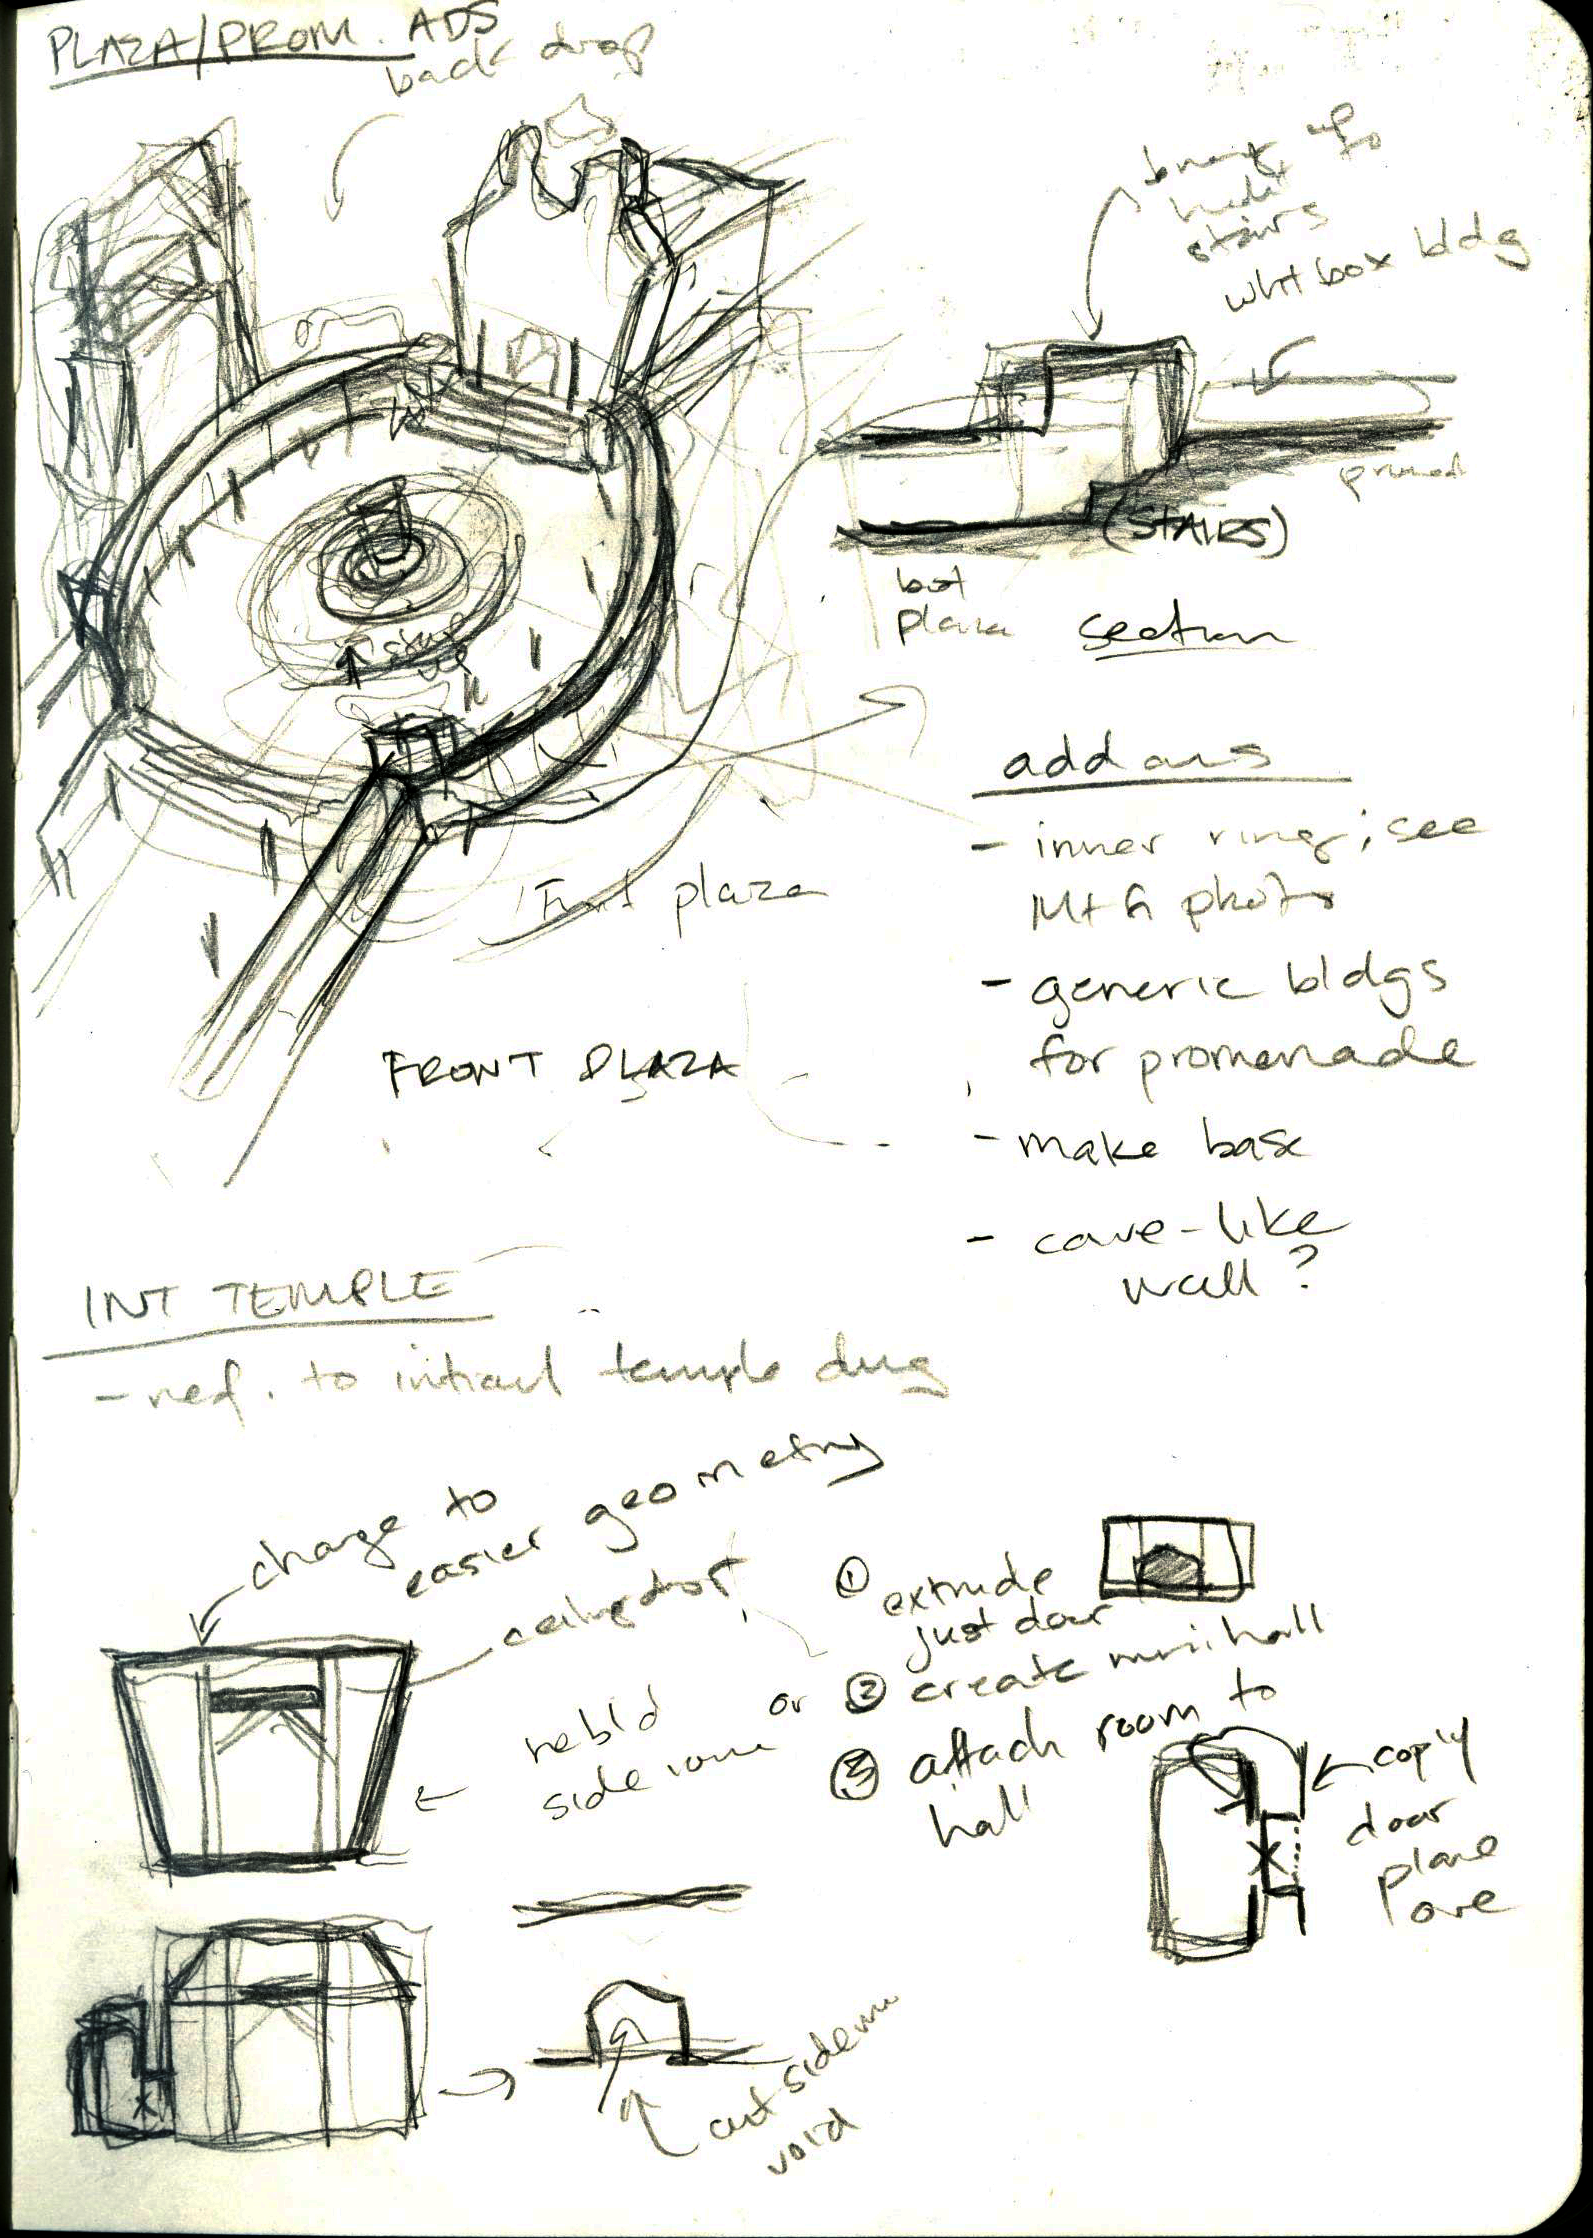 PLAZA/PROM. ADS
back drop
stairs
whtbox bldg
(STAIRS)
bot
plaza
section
step
up
Front plaza
FRONT PLAZA
add ons
- inner ring; see
photo
- generic bldgs
for promenade
- make base
- cave-like
wall?
INT TEMPLE
- ref. to initial temple dwg
change to
easier geometry
ceiling drop
rebld
side room
or
① extrude
just door
② create minihall
③ attach room to
hall
copy
door
plane
over
cut siderm
void